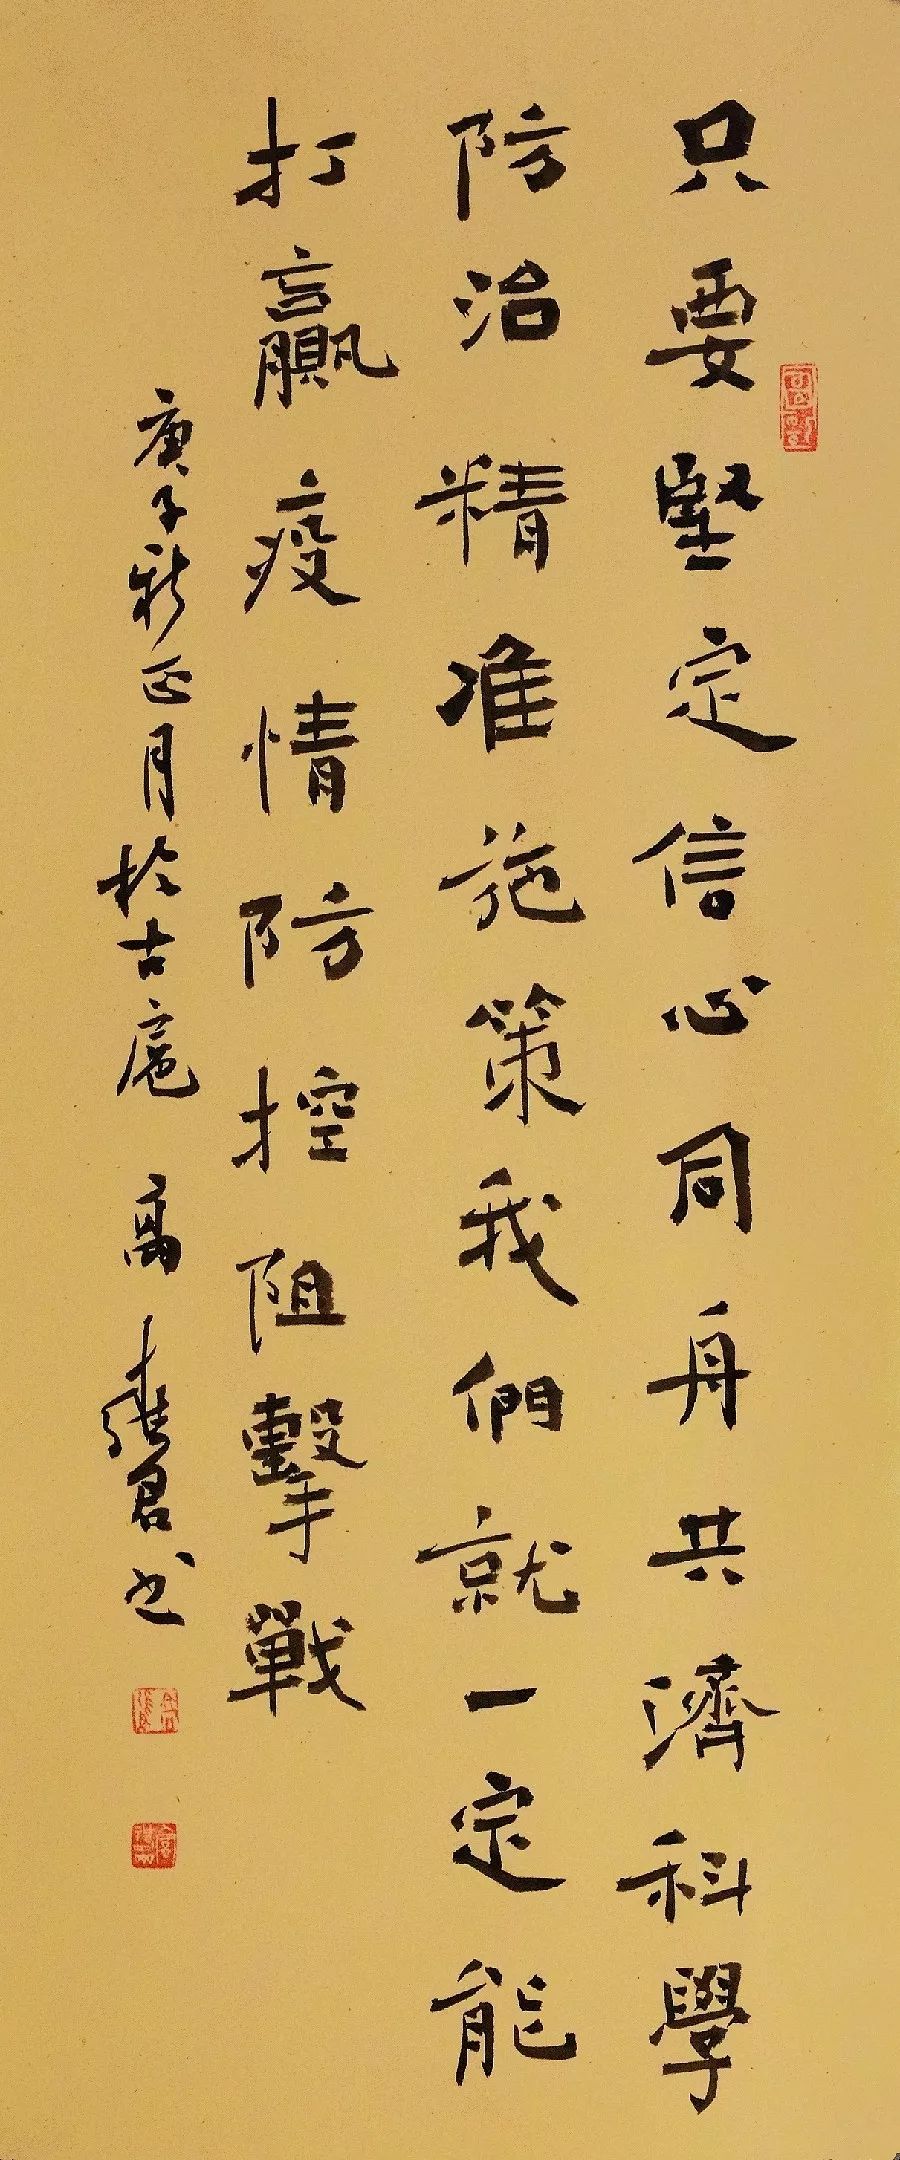 只要堅定信心同舟共濟科學
防治精准施策我們就一定能
打贏疫情防控阻擊戰
庚子新正月於古扈 高維君书